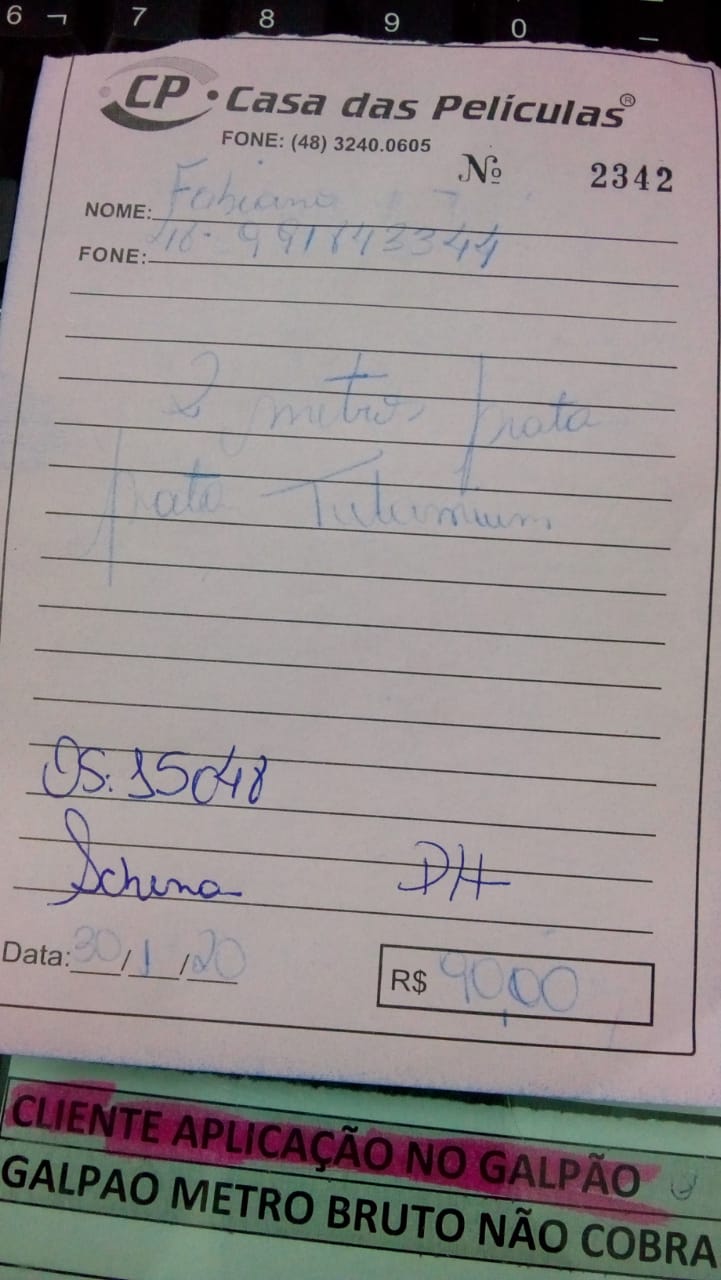 6 7 8 9 0
CP · Casa das Películas®
FONE: (48) 3240.0605
Nº 2342
NOME: Fabiano
FONE: 48-991643344
2 metros prata
prata
OS. 15048
Schena DH
Data: 30/1/20 R$ 90,00
CLIENTE APLICAÇÃO NO GALPÃO
GALPAO METRO BRUTO NÃO COBRA